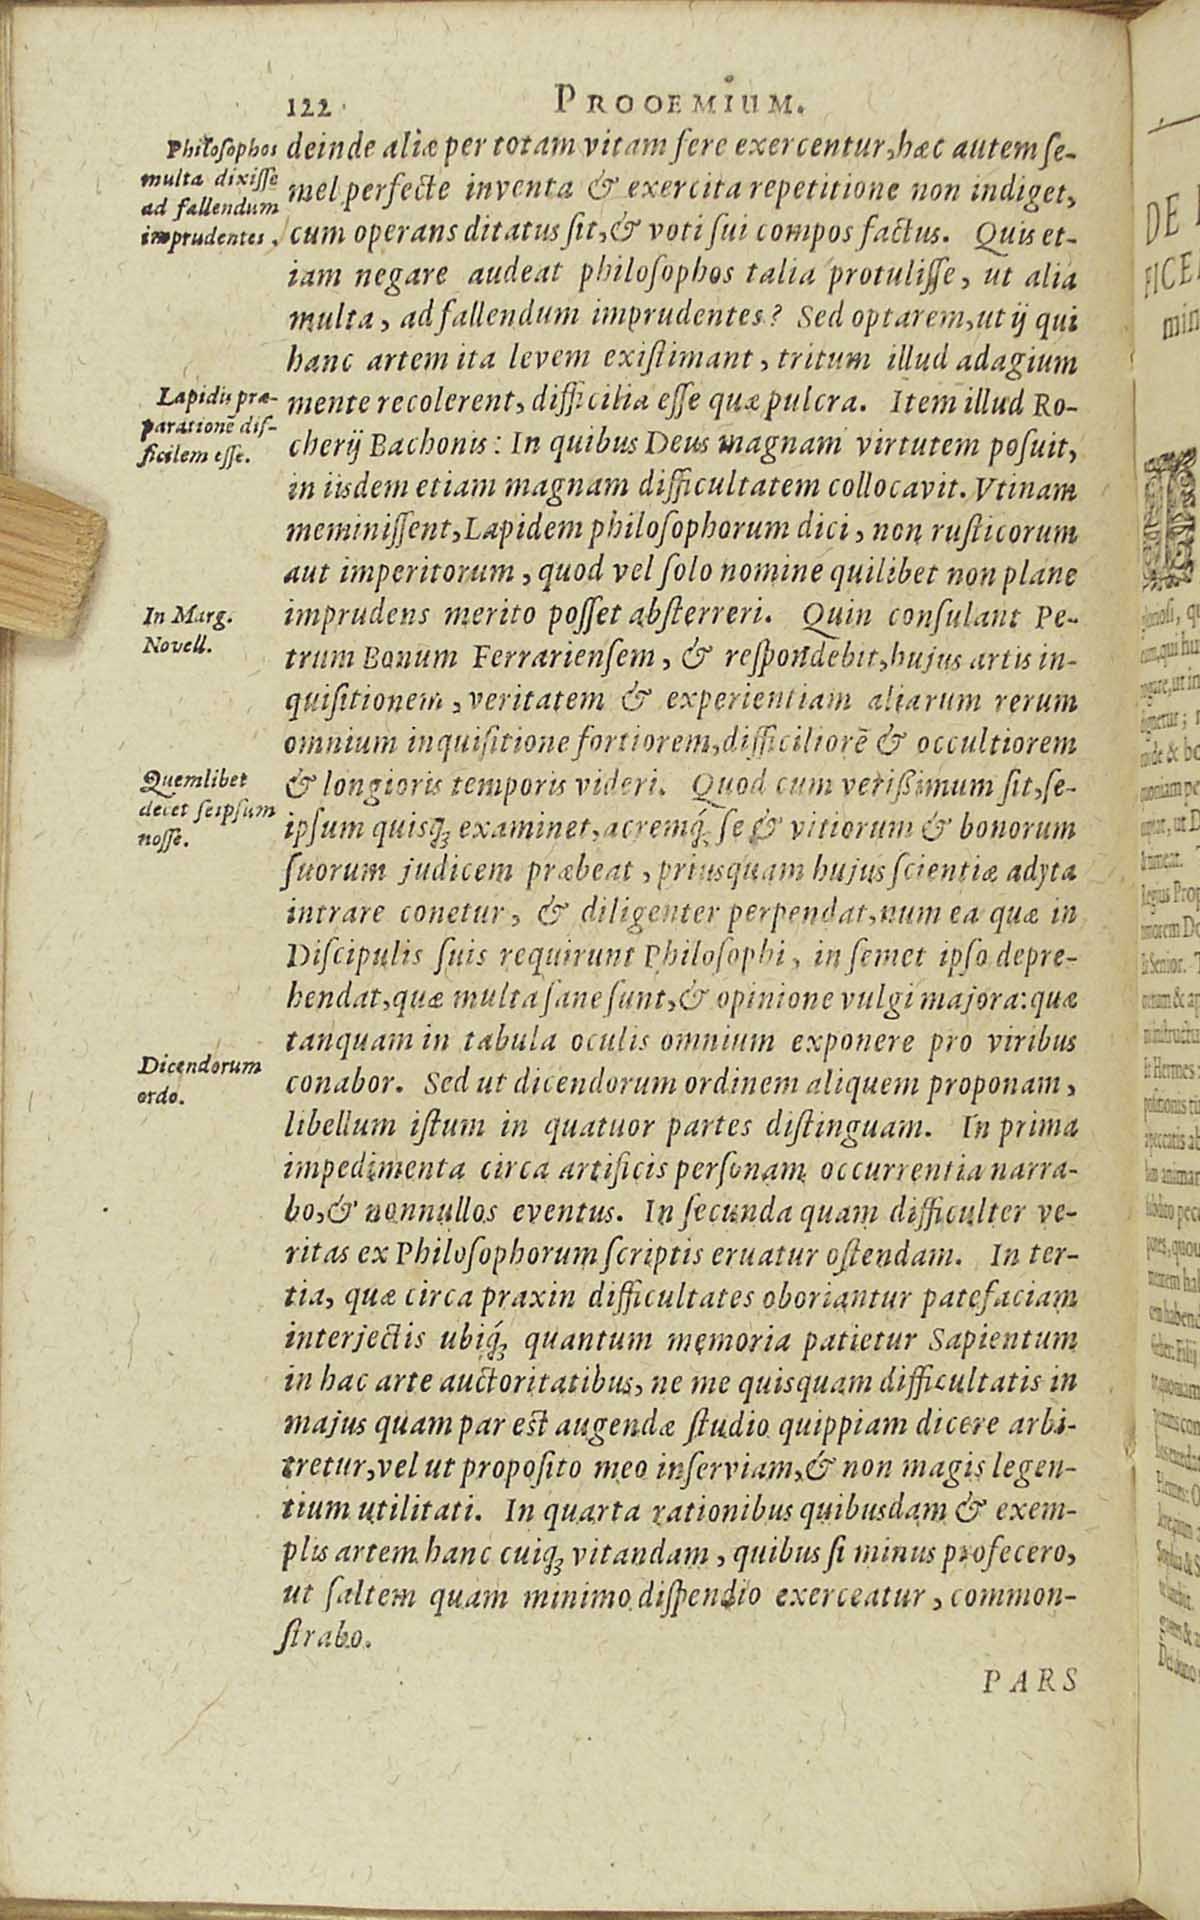 122
PROOEMIUM.
Philosophos
multa dixisse
ad fallendum
imprudentes.
deinde aliæ per totam vitam fere exercentur, hæc autem se-
mel perfecte inventa & exercita repetitione non indiget,
cum operans ditatus sit, & voti sui compos factus. Quis et-
iam negare audeat philosophos talia protulisse, ut alia
multa, ad fallendum imprudentes? Sed optarem, ut ij qui
hanc artem ita levem existimant, tritum illud adagium
Lapidis præ-
parationē dif-
ficilem esse.
mente recolerent, difficilia esse quæ pulcra. Item illud Ro-
cherij Bachonis: In quibus Deus magnam virtutem posuit,
in iisdem etiam magnam difficultatem collocavit. Vtinam
meminissent, Lapidem philosophorum dici, non rusticorum
aut imperitorum, quod vel solo nomine quilibet non plane
In Marg.
Novell.
imprudens merito posset absterreri. Quin consulant Pe-
trum Bonum Ferrariensem, & respondebit, hujus artis in-
quisitionem, veritatem & experientiam aliarum rerum
omnium inquisitione fortiorem, difficiliorē & occultiorem
Quemlibet
decet seipsum
nosse.
& longioris temporis videri. Quod cum verißimum sit, se-
ipsum quisq; examinet, acremq́; se & vitiorum & bonorum
suorum judicem præbeat, priusquam hujus scientiæ adyta
intrare conetur, & diligenter perpendat, num ea quæ in
Discipulis suis requirunt Philosophi, in semet ipso depre-
hendat, quæ multa sane sunt, & opinione vulgi majora: quæ
tanquam in tabula oculis omnium exponere pro viribus
Dicendorum
ordo.
conabor. Sed ut dicendorum ordinem aliquem proponam,
libellum istum in quatuor partes distinguam. In prima
impedimenta circa artificis personam occurrentia narra-
bo, & nonnullos eventus. In secunda quam difficulter ve-
ritas ex Philosophorum scriptis eruatur ostendam. In ter-
tia, quæ circa praxin difficultates oboriantur patefaciam
interjectis ubiq́; quantum memoria patietur Sapientum
in hac arte auctoritatibus, ne me quisquam difficultatis in
majus quam par est augendæ studio quippiam dicere arbi-
tretur, vel ut proposito meo inserviam, & non magis legen-
tium utilitati. In quarta rationibus quibusdam & exem-
plis artem hanc cuiq; vitandam, quibus si minus profecero,
ut saltem quam minimo dispendio exerceatur, common-
strabo.
PARS